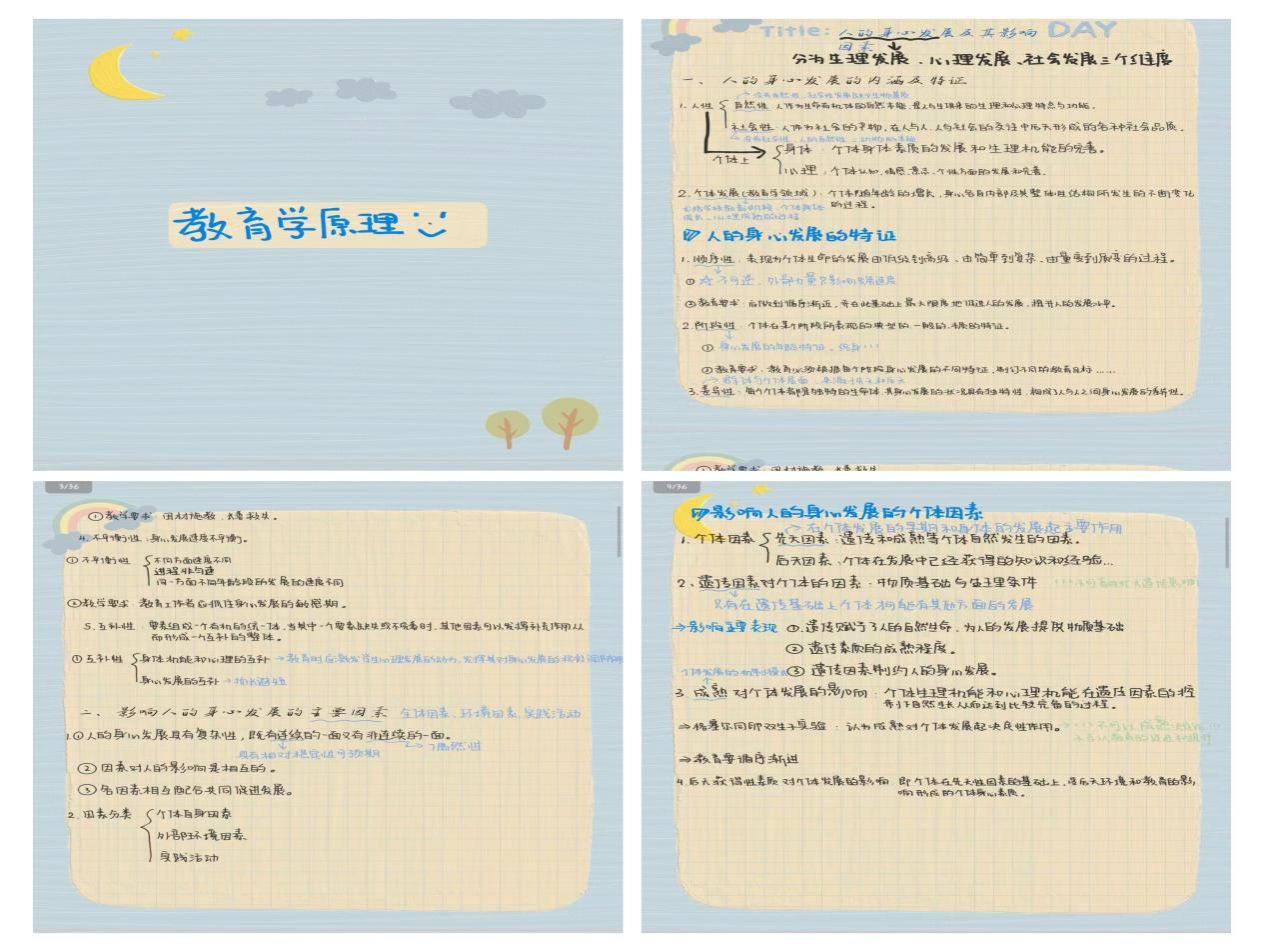 教育学原理
Title: 人的身心发展及其影响 DAY
因素
分为生理发展、心理发展、社会发展三个维度
一、人的身心发展的内涵及特征
1. 人性
自然性:人作为生命有机体的自然本能,是人与生俱来的生理和心理特点与功能。
社会性:人作为社会的产物,在人与人、人与社会的交往中后天形成的各种社会品质。
个体上
身体:个体身体素质的发展和生理机能的完善。
心理:个体认知、情感、意志、个性方面的发展和完善。
2. 个体发展(教育学领域):个体随年龄的增长,身心各自内部及其整体性结构所发生的不断变化
的过程。
人的身心发展的特征
1. 顺序性:表现为个体生命的发展由低级到高级、由简单到复杂、由量变到质变的过程。
① 不可逆,外部力量只影响发展速度
②教育要求:应做到循序渐进,并在此基础上最大限度地促进人的发展,提升人的发展水平。
2. 阶段性:个体在某个阶段所表现的典型的、一般的、本质的特征。
① 身心发展的年龄特征
②教育要求:教育必须根据每个阶段身心发展的不同特征,制订不同的教育目标……
3. 差异性:每个个体都是独特的生命体,其身心发展的状况具有独特性,构成了人与人之间身心发展的差异性。
3/36
①教学要求:因材施教、长善救失。
4. 不平衡性:身心发展速度不平衡。
①不平衡性
不同方面速度不同
进程非匀速
同一方面不同年龄段的发展的速度不同
②教学要求:教育工作者应抓住身心发展的敏感期。
5. 互补性:要素组成一个有机的统一体,当其中一个要素缺失或不完善时,其他因素可以发挥补充作用从
而形成一个互补的整体。
①互补性
身体机能和心理的互补
身心发展的互补 → 扬长避短
二、影响人的身心发展的主要因素 个体因素、环境因素、实践活动
1.①人的身心发展具有复杂性,既有连续的一面又有非连续的一面。
→ 偶然性
具有相对稳定性可预期
②因素对人的影响是相互的。
③各因素相互配合共同促进发展。
2. 因素分类
个体自身因素
外部环境因素
实践活动
9/36
影响人的身心发展的个体因素
→ 在个体发展的早期和身体的发展起主要作用
1. 个体因素
先天因素:遗传和成熟等个体自然发生的因素。
后天因素:个体在发展中已经获得的知识和经验…
2、遗传因素对个体的因素:物质基础与生理条件
只有在遗传基础上个体才可能有其他方面的发展
→影响主要表现 ①遗传赋予了人的自然生命,为人的发展提供物质基础
②遗传素质的成熟程度。
③遗传因素制约人的身心发展。
3. 成熟对个体发展的影响:个体生理机能和心理机能在遗传因素的控
制下自然生长从而达到比较完备的过程。
⇒格塞尔同卵双生子实验:认为成熟对个体发展起决定性作用。
⇒教育要循序渐进
4. 后天获得性素质对个体发展的影响:即个体在先天性因素的基础上,受后天环境和教育的影
响形成的个体身心素质。